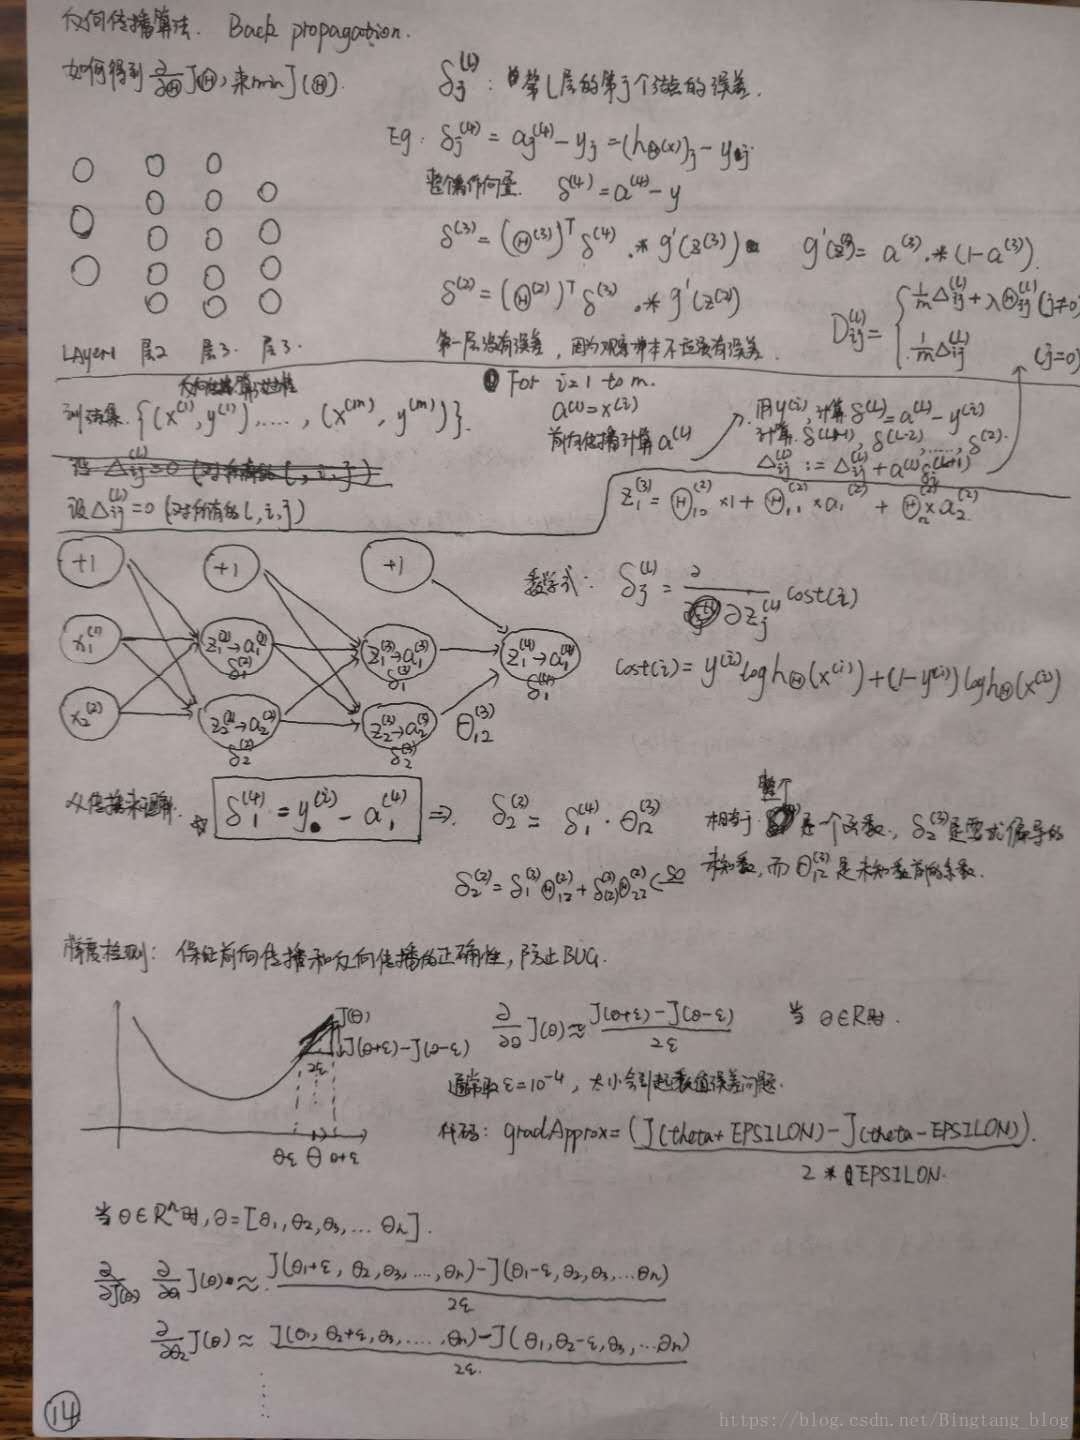 反向传播算法. Back propagation.
如何得到 ∂/∂Θ J(Θ), 来min J(Θ).
δj^(l) : 第l层的第j个结点的误差.
Eg: δj^(4) = aj^(4) - yj = (hΘ(x))j - yj
整个操作向量. δ^(4) = a^(4) - y
δ^(3) = (Θ^(3))^T δ^(4) .* g'(z^(3)) g'(z^(3)) = a^(3) .* (1-a^(3)).
δ^(2) = (Θ^(2))^T δ^(3) .* g'(z^(2))
Dij^(l) = { 1/m Δij^(l) + λΘij^(l) (j≠0)
1/m Δij^(l) (j=0)
LAyer1 层2 层3. 层3.
第一层没有误差, 因为观察样本不应该有误差.
训练集. {(x^(1), y^(1)), ...., (x^(m), y^(m))}.
设 Δij^(l) = 0 (对所有的 l, i, j)
设 Δij^(l) = 0 (对所有的 l, i, j)
① For i=1 to m.
a^(1) = x^(i)
前向传播计算 a^(l)
用y^(i), 计算 δ^(L) = a^(L) - y^(i)
计算. δ^(L-1), δ^(L-2), ....., δ^(2).
Δij^(l) := Δij^(l) + a^(l) δi^(l+1)
z1^(3) = Θ10^(2) ×1 + Θ11^(2) × a1^(2) + Θ12^(2) × a2^(2)
+1 +1 +1
x1^(1) z1^(2)→a1^(2) z1^(3)→a1^(3) z1^(4)→a1^(4)
δ1^(2) δ1^(3) δ1^(4)
x2^(2) z2^(2)→a2^(2) z2^(3)→a2^(3) θ12^(3)
δ2^(2) δ2^(3)
数学式: δj^(l) = ∂/∂zj^(l) cost(i)
cost(i) = y^(i) log hΘ(x^(i)) + (1-y^(i)) log hΘ(x^(i))
从传播来理解. ☆ δ1^(4) = y^(i) - a1^(4) ⇒. δ2^(3) = δ1^(4) · θ12^(3)
相当于整个是一个函数, δ2^(3)是要求偏导的
未知数, 而 Θ12^(3) 是未知数前的系数.
δ2^(2) = δ1^(3) Θ12^(2) + δ(2)^(3) Θ22^(2) ← so
梯度检测: 保证前向传播和反向传播的正确性, 防止BUG.
J(θ)
J(θ+ε)-J(θ-ε)
2ε
θε θ θ+ε
∂/∂θ J(θ) ≈ J(θ+ε)-J(θ-ε) / 2ε 当 θ∈R时.
通常取 ε=10^-4, 太小会引起数值误差问题.
代码: gradApprox = (J(theta+EPSILON)-J(theta-EPSILON)).
2 * EPSILON.
当 θ∈R^n时, θ=[θ1, θ2, θ3, ... θn].
∂/∂J(θ) ∂/∂θ1 J(θ) ≈ J(θ1+ε, θ2, θ3, ..., θn)-J(θ1-ε, θ2, θ3, ...θn) / 2ε
∂/∂θ2 J(θ) ≈ J(θ1, θ2+ε, θ3, ....., θn)-J(θ1, θ2-ε, θ3, ...θn) / 2ε.
⋮
14
https://blog.csdn.net/Bingtang_blog